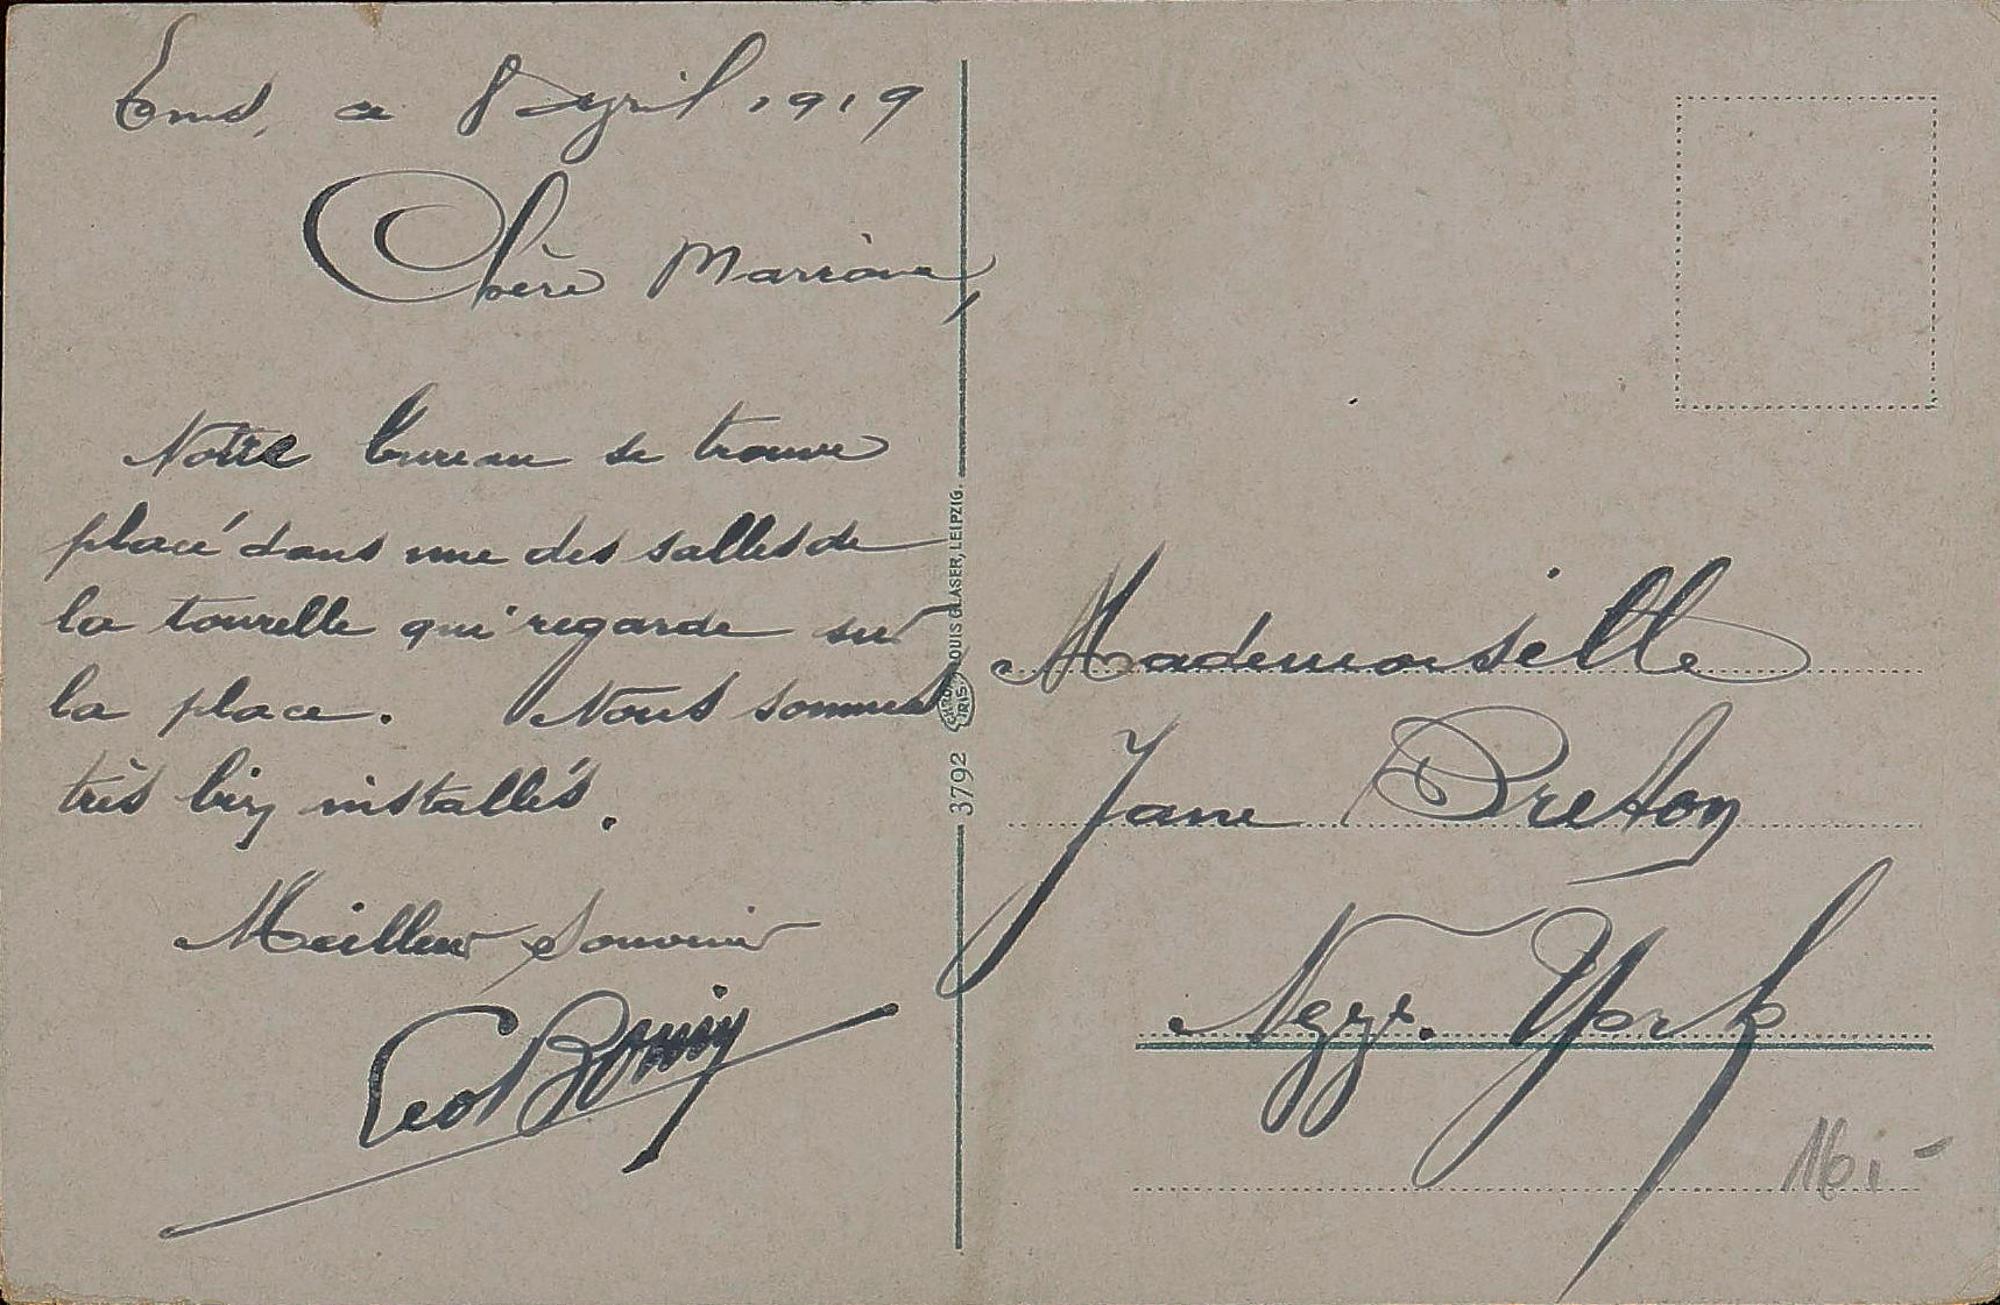 Ems, ce 8 april 1919
Chère Marraine,
Notre bureau se trouve
placé dans une des salles de
la tourelle qui regarde sur
la place. Nous sommes
très bien installés.
Meilleur souvenir
3792
LOUIS GLASER, LEIPZIG.
Mademoiselle
Jane Breton
York
16,-